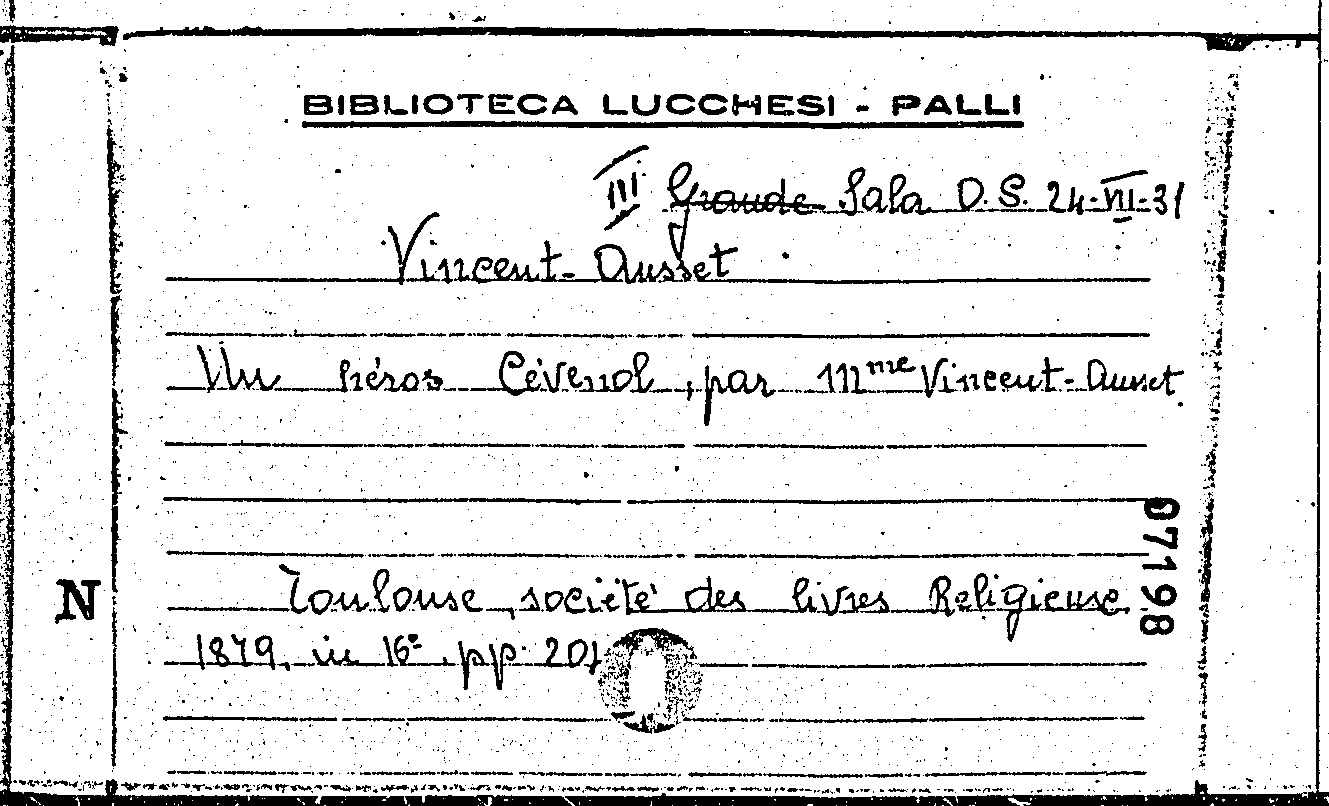 BIBLIOTECA LUCCHESI - PALLI
III Grande Sala D.S. 24-VII-31
Vincent-Ausset
Un héros Cévenol, par Mme Vincent-Ausset.
07198
N
Toulouse, société des livres Religieuse.
1879. in 16º. pp. 201